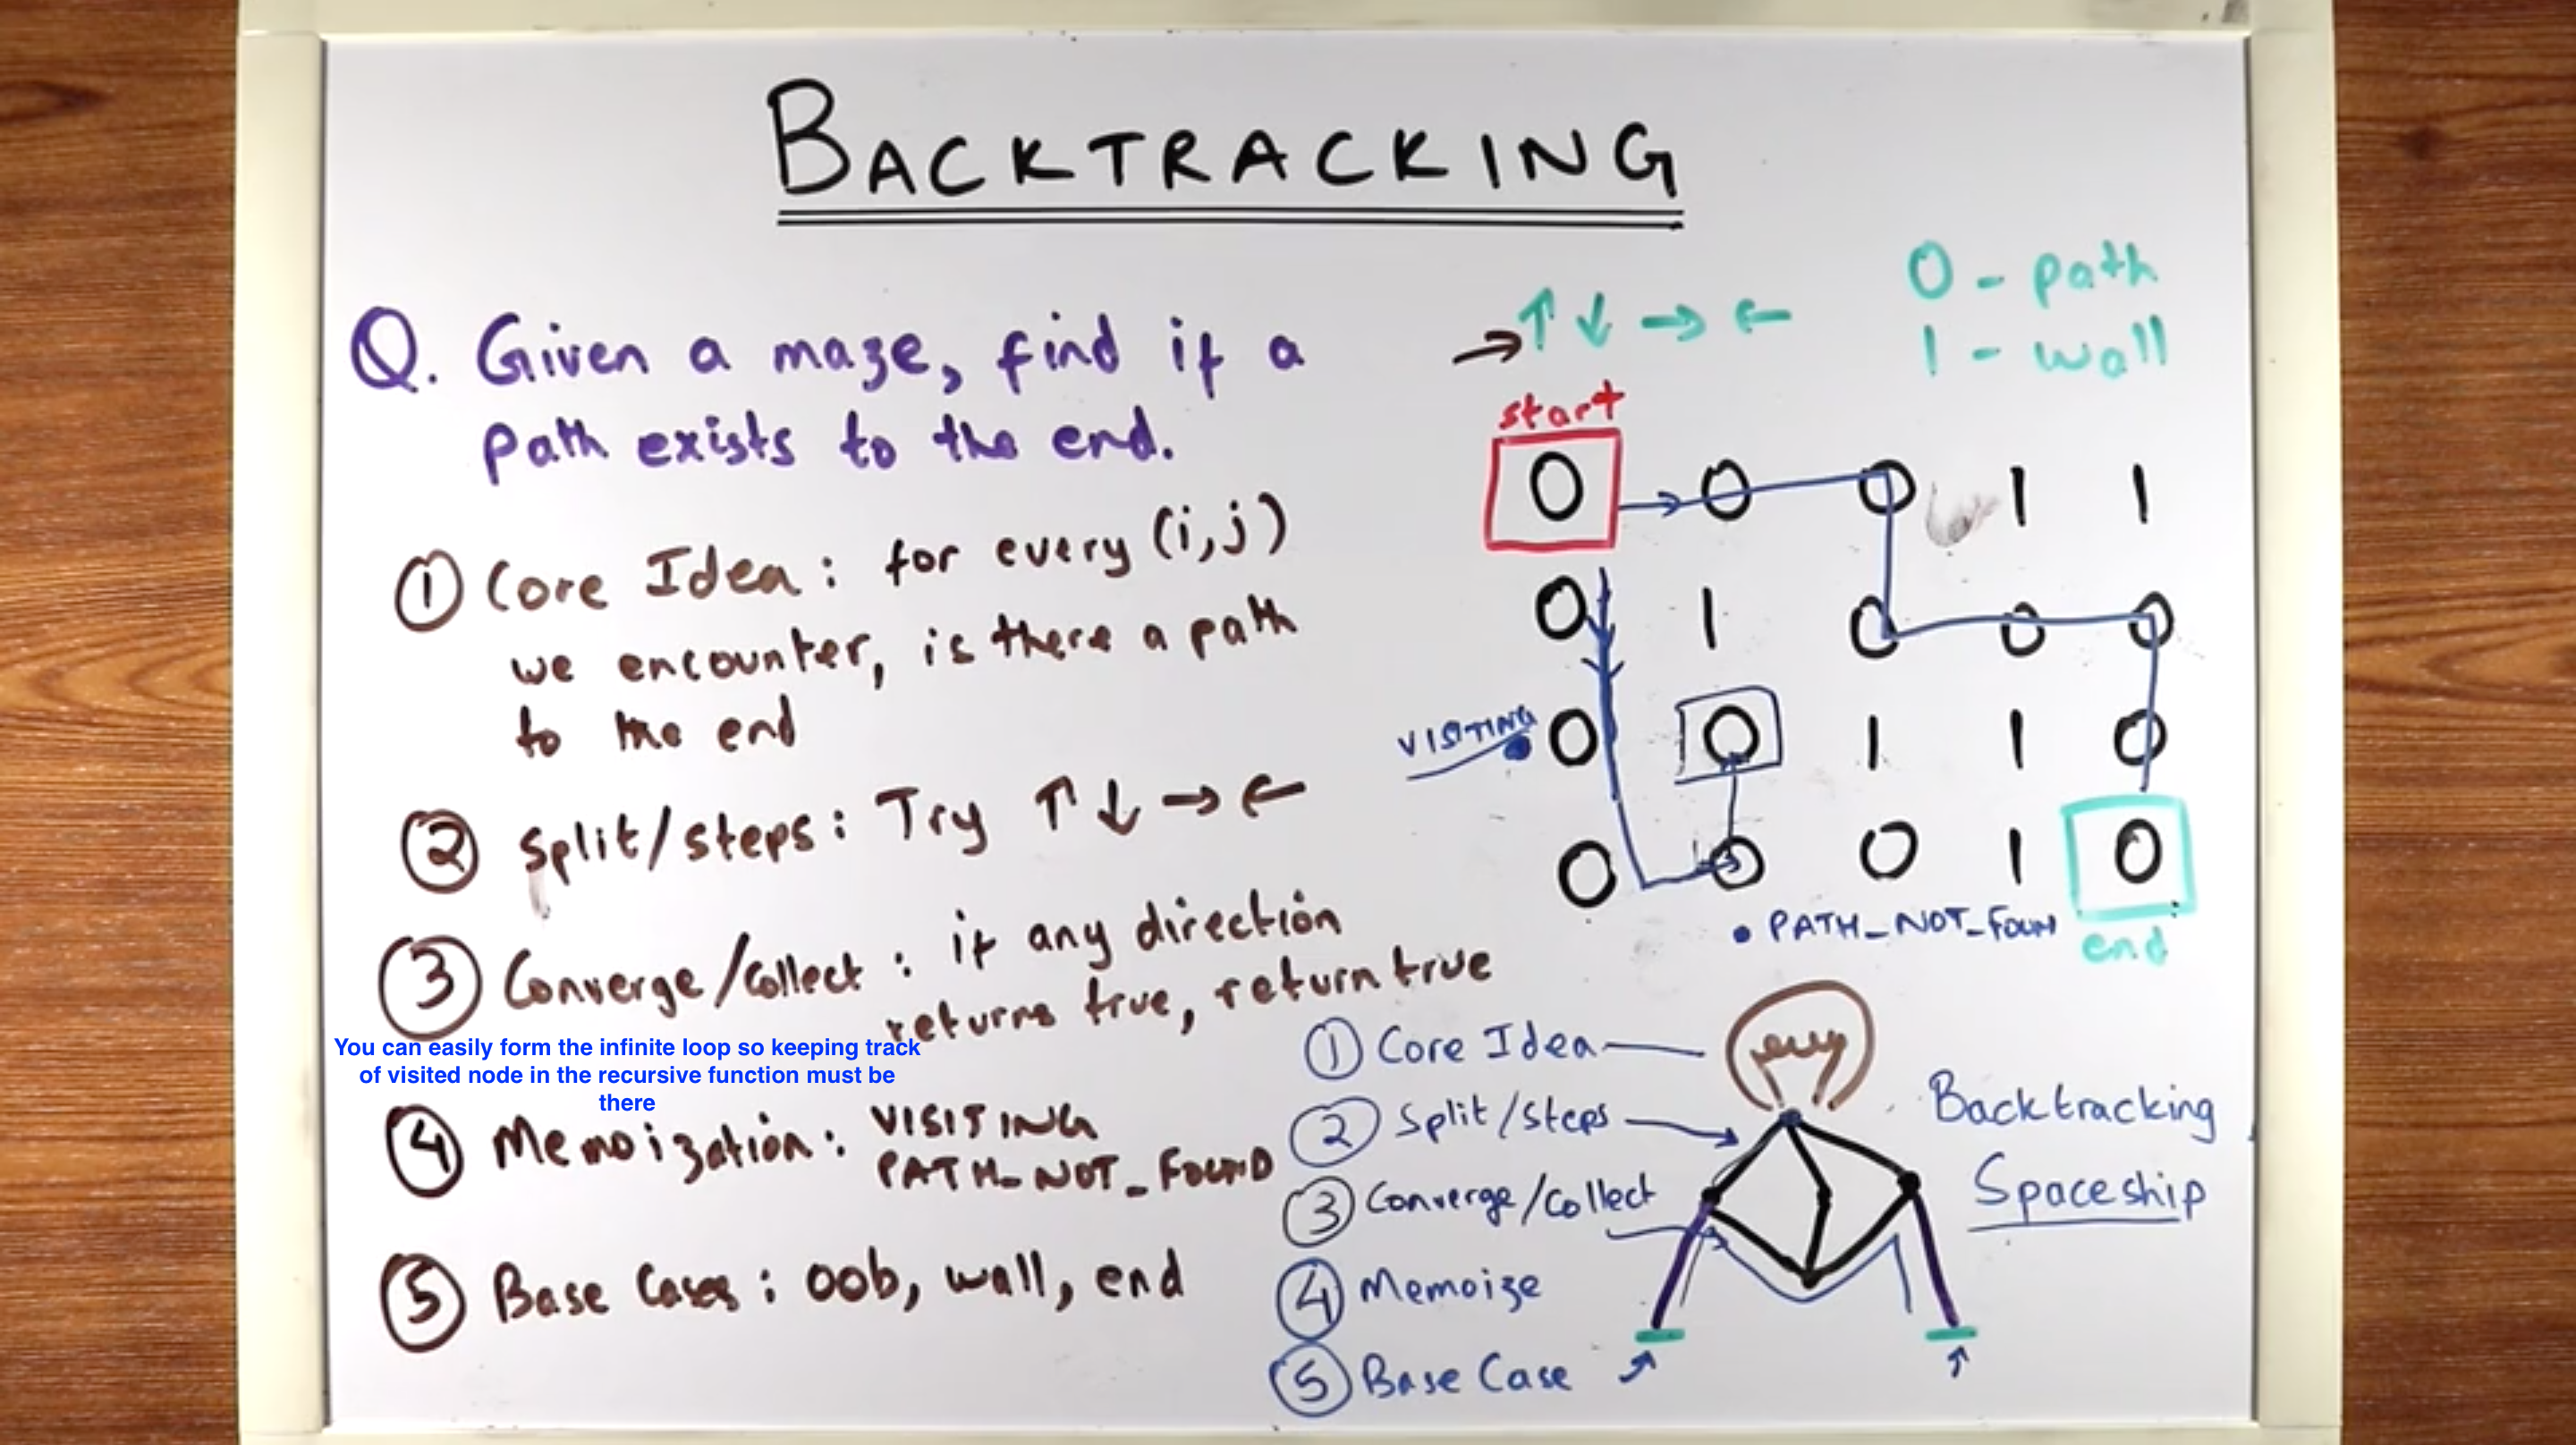 BACKTRACKING
Q. Given a maze, find if a
path exists to the end.
① Core Idea: for every (i,j)
we encounter, is there a path
to the end
② Split/steps: Try ↑ ↓ → ←
③ Converge/Collect: if any direction
returns true, return true
You can easily form the infinite loop so keeping track
of visited node in the recursive function must be
there
④ Memoization: VISITING
PATH_NOT_FOUND
⑤ Base Cases: oob, wall, end
→ ↑ ↓ → ←
0 - path
1 - wall
start
0 0 0 1 1
0 1 0 0 0
VISITING
0 0 1 1 0
0 0 0 1 0
• PATH_NOT_FOUN
end
① Core Idea
② Split/Steps
③ Converge/Collect
④ Memoize
⑤ Base Case
Backtracking
Spaceship